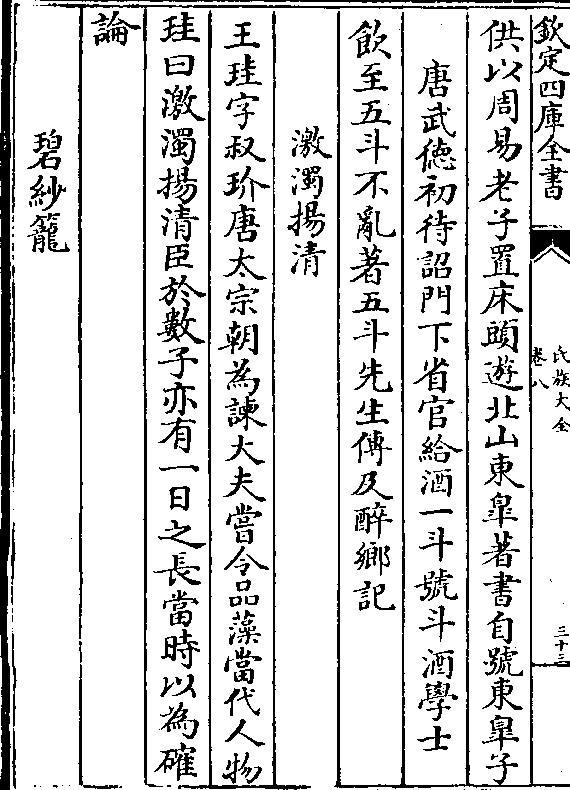 欽定四庫全書
氏族大全
卷八
三十三
供以周易老子置床頭遊北山東臯著書自號東臯子
唐武德初待詔門下省官給酒一斗號斗酒學士
飲至五斗不亂著五斗先生傳及醉鄉記
激濁揚清
王珪字叔玠唐太宗朝為諫大夫嘗令品藻當代人物
珪曰激濁揚清臣於數子亦有一日之長當時以為確
論
碧紗籠